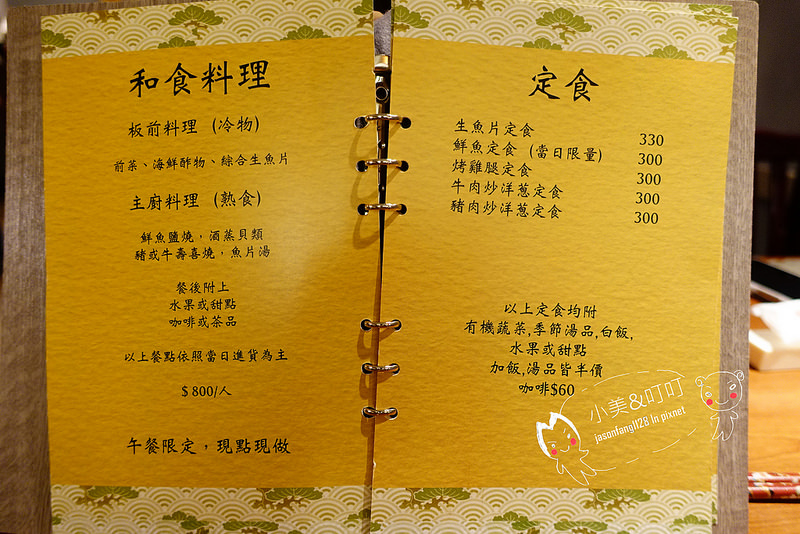 和食料理
板前料理 (冷物)
前菜、海鮮酢物、綜合生魚片
主廚料理 (熟食)
鮮魚鹽燒，酒蒸貝類
豬或牛壽喜燒，魚片湯
餐後附上
水果或甜點
咖啡或茶品
以上餐點依照當日進貨為主
$ 800/人
午餐限定，現點現做
定食
生魚片定食 330
鮮魚定食 (當日限量) 300
烤雞腿定食 300
牛肉炒洋蔥定食 300
豬肉炒洋蔥定食 300
以上定食均附
有機蔬菜,季節湯品,白飯,
水果或甜點
加飯,湯品皆半價
咖啡$60
小美&叮叮
jasonfang1128 In pixnet